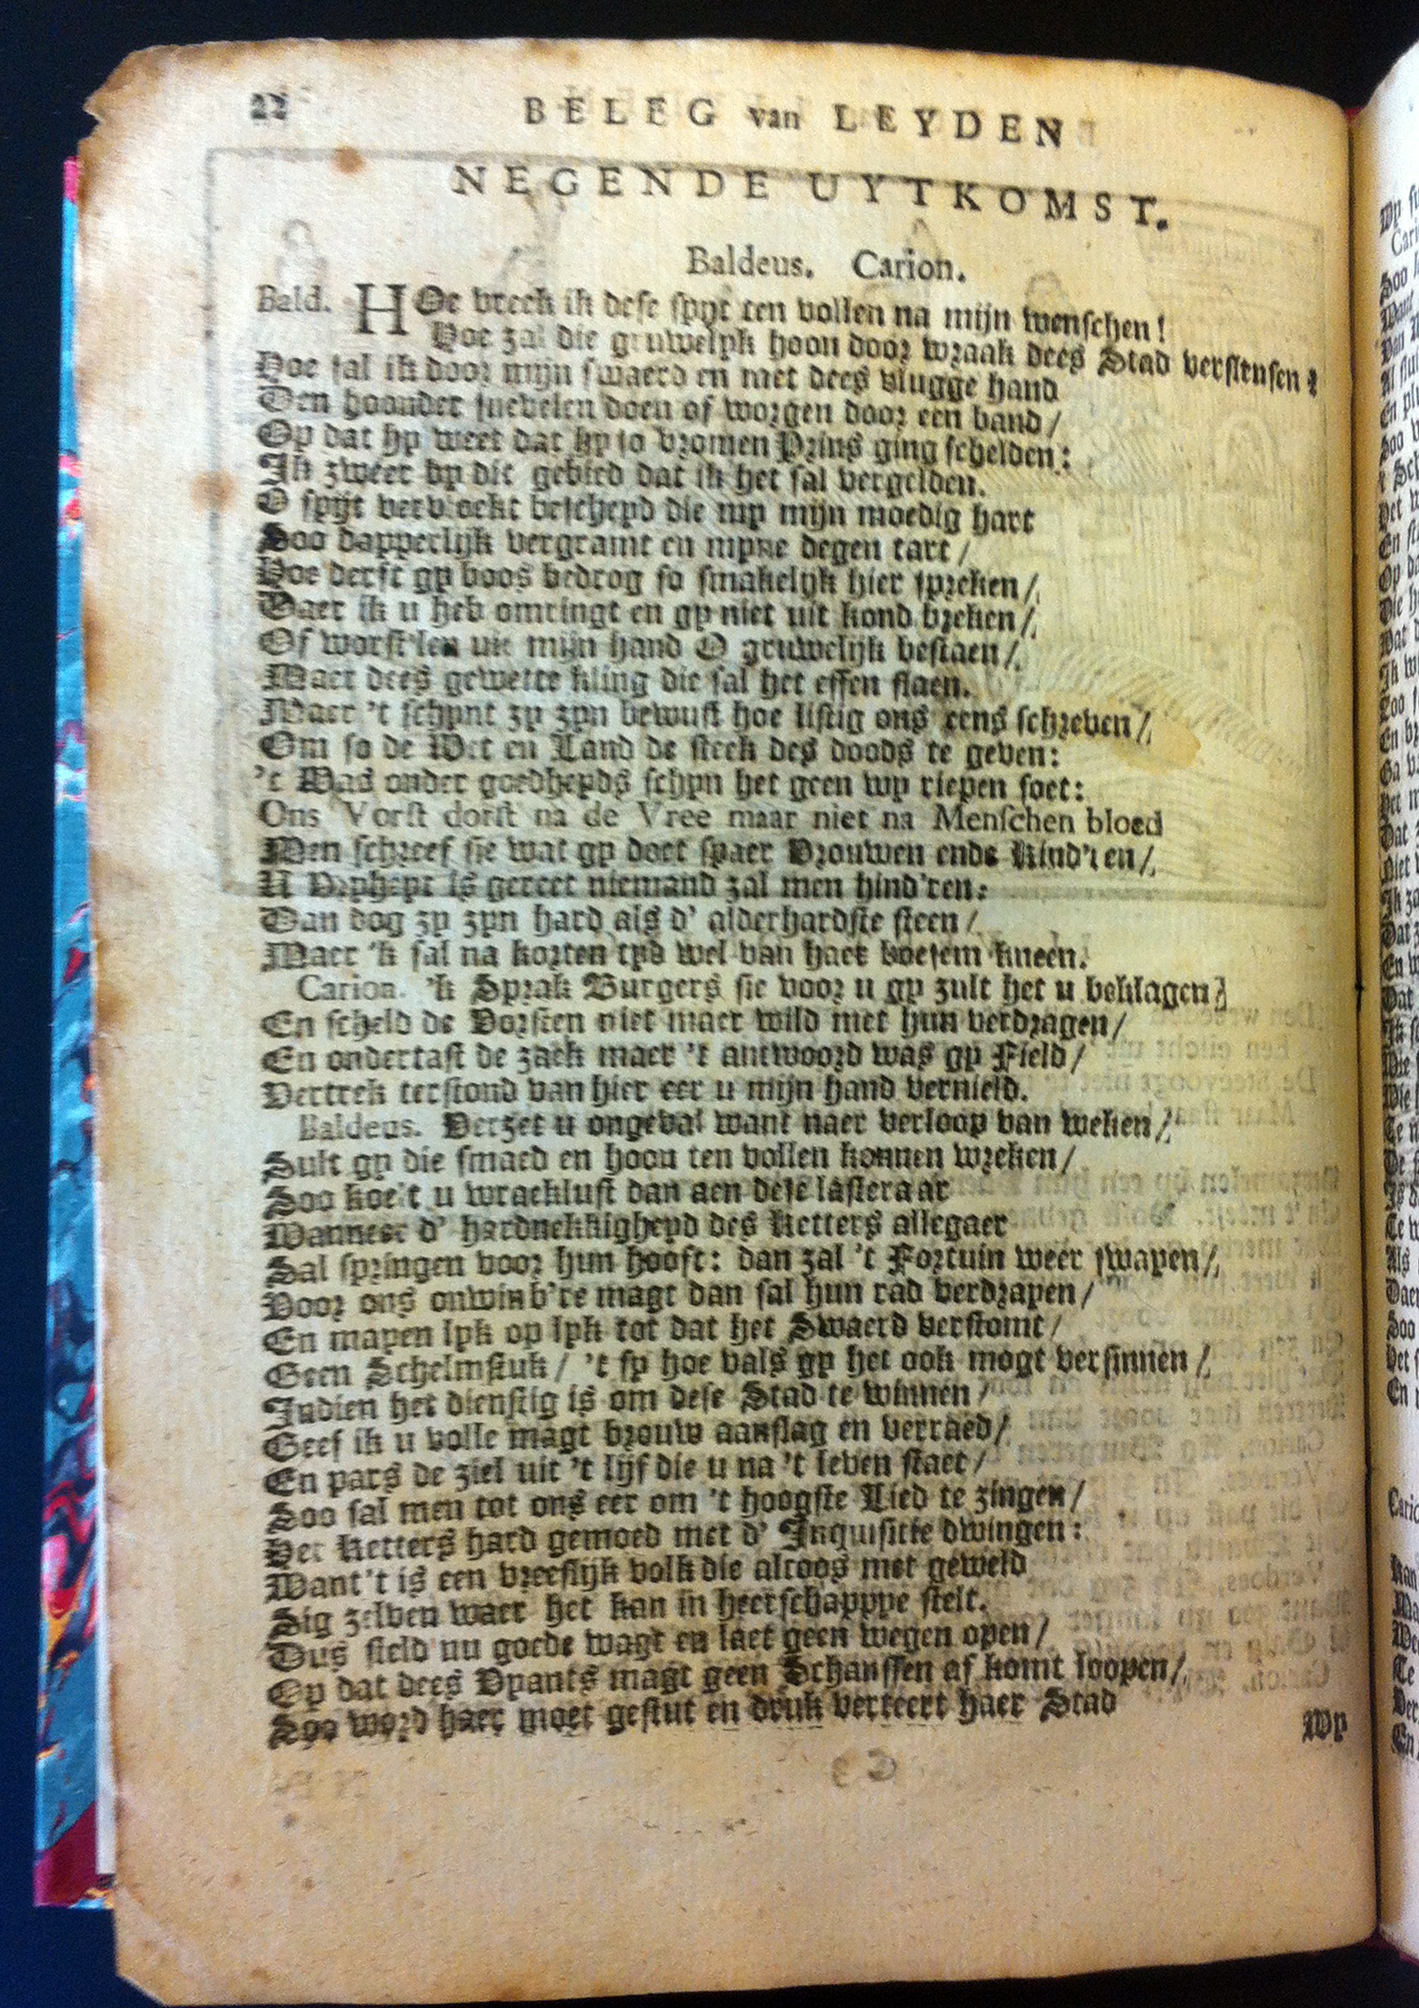 22 BELEG van LEYDEN
NEGENDE UYTKOMST.
Baldeus. Carion.
Bald. HOe vreek ik dese spyt ten vollen na mijn wenschen!
Hoe zal die gruwelyk hoon door wraak dees Stad verslensen!
Hoe sal ik door mijn swaerd en met dees vlugge hand
Den hoonder snevelen doen of worgen door een band/
Op dat hy weet dat hy so vromen Prins ging schelden:
Ik zweer by dit gebied dat ik het sal vergelden.
O spijt vervloekt bescheyd die my mijn moedig hart
Soo dapperlijk vergramt en myne degen tart/
Hoe derft gy boos bedrog so smakelijk hier spreken/
Daer ik u heb omringt en gy niet uit kond breken/
Of worst'len uit mijn hand O gruwelijk bestaen/
Maer dees gewette kling die sal het effen slaen.
Maer 't schynt zy zyn bewust hoe listig ons eens schreven/
Om so de Wet en Land de steek des doods te geven:
't Was onder goedheyds schyn het geen wy riepen soet:
Ons Vorst dorst na de Vree maar niet na Menschen bloed
Men schreef sie wat gy doet spaer Vrouwen ende Kind'ren/
U Vryheyt is gereet niemand zal men hind'ren:
Dan dog zy zyn hard als d' alderhardste steen/
Maer 'k sal na korten tyd wel van haer boesem kneen.
Carion. 'k Sprak Burgers sie voor u gy zult het u beklagen/
En scheld de Vorsten niet maer wild met hun verdragen/
En ondertast de zaek maer 't antwoord was gy Field/
Vertrek terstond van hier eer u mijn hand vernield.
Baldeus. Verzet u ongeval want naer verloop van weken/
Sult gy die smaed en hoon ten vollen konnen wreken/
Soo koelt u wraeklust dan aen dese lasteraar
Wanneer d' hardnekkigheyd des Ketters allegaer
Sal springen voor hun hooft: dan zal 't Fortuin weer swayen/
Voor ons onwinb're magt dan sal hun rad verdrayen/
En mayen lyk op lyk tot dat het Swaerd verstomt/
Geen Schelmstuk/ 't sy hoe vals gy het ook mogt versinnen/
Indien het dienstig is om dese Stad te winnen/
Geef ik u volle magt brouw aanslag en verraed/
En pars de ziel uit 't lijf die u na 't leven staet/
Soo sal men tot ons eer om 't hoogste Lied te zingen/
Het Ketters hard gemoed met d' Inquisitie dwingen:
Want 't is een vreeslijk volk die altoos met geweld
Sig zelven waer het kan in heerschappye stelt.
Dus steld nu goede wagt en laet geen wegen open/
Op dat dees Vyants magt geen Schanssen af komt loopen/
Soo word haer moet gestut en druk verteert haer Stad
Wy